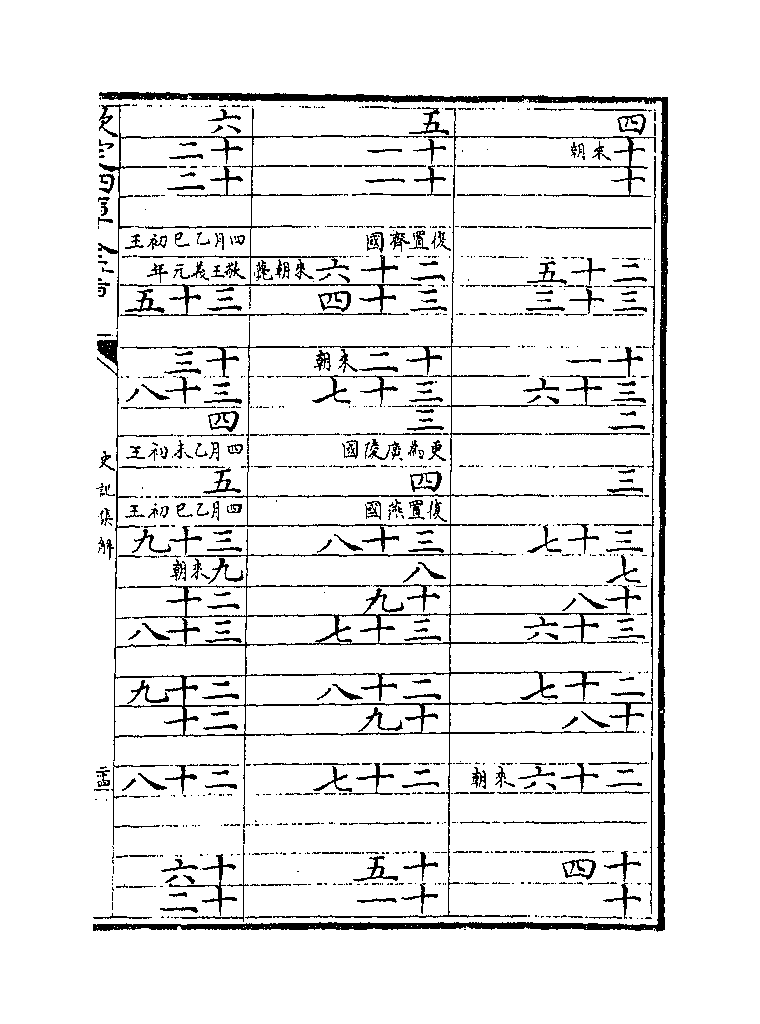 四
十來朝
十
二十五
三十三
十一
三十六
二
三
三十七
七
十八
三十六
二十七
十八
二十六來朝
十四
十
五
十一
十一
復置齊國
二十六來朝薨
三十四
十二來朝
三十七
三
更為廣陵國
四
復置燕國
三十八
八
十九
三十七
二十八
十九
二十七
十五
十一
六
十二
十二
四月乙巳初王
敬王義元年
三十五
十三
三十八
四
四月乙未初王
五
四月乙巳初王
三十九
九來朝
二十
三十八
二十九
二十
二十八
十六
十二
欽定四庫全書
史記集解